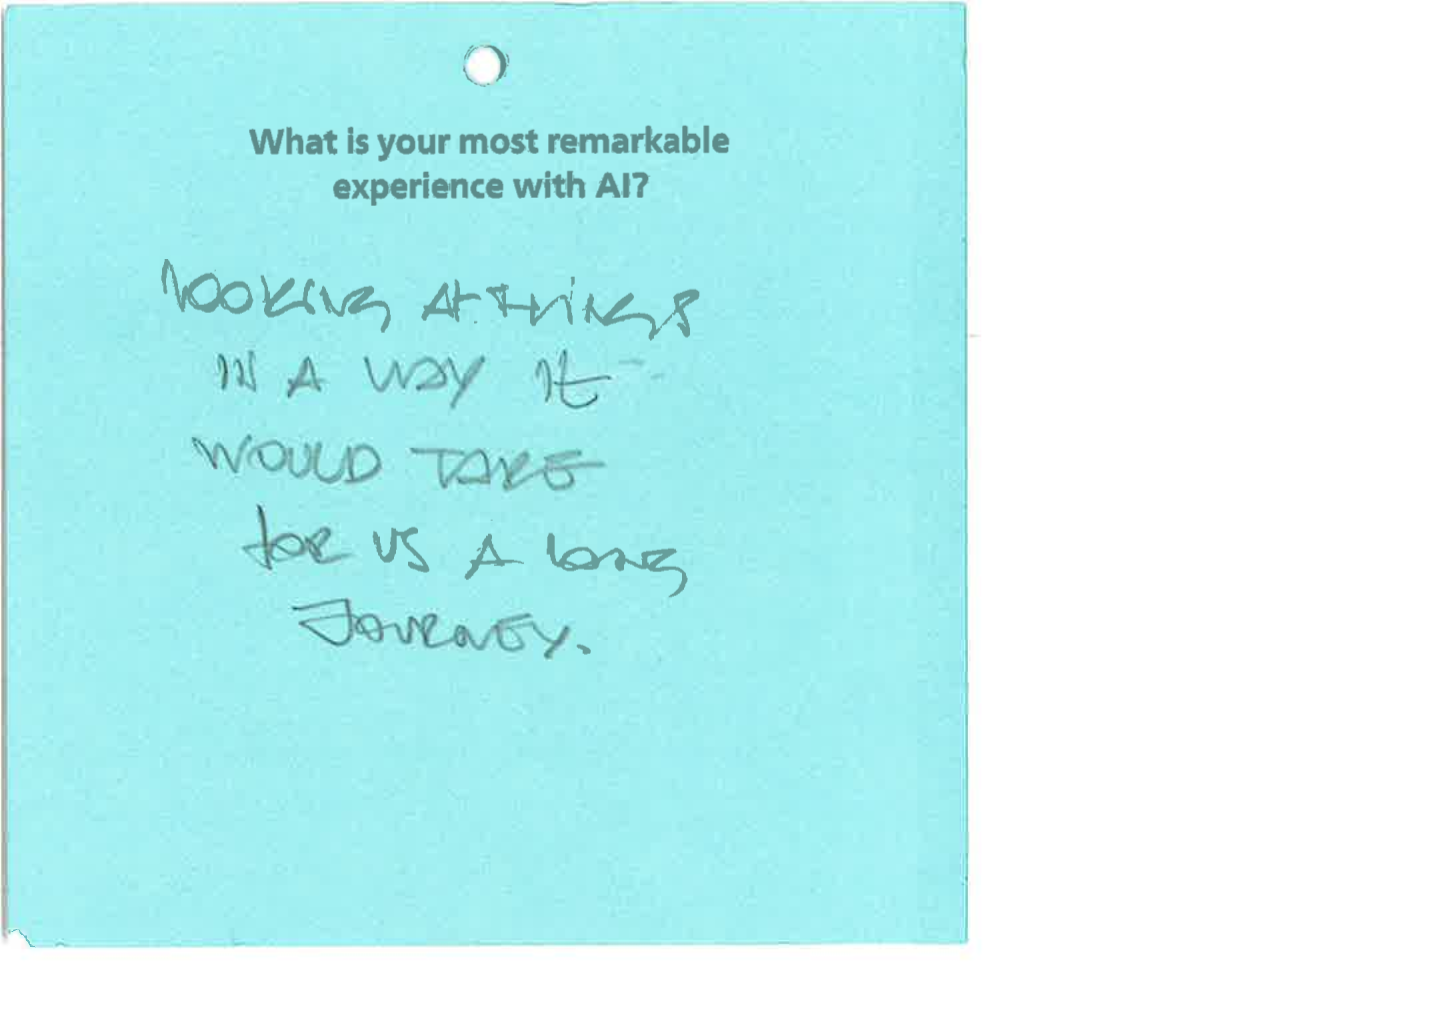 What is your most remarkable
experience with AI?
LOOKING AT THINGS
IN A WAY IT
WOULD TAKE
for US A LONG
JOURNEY.